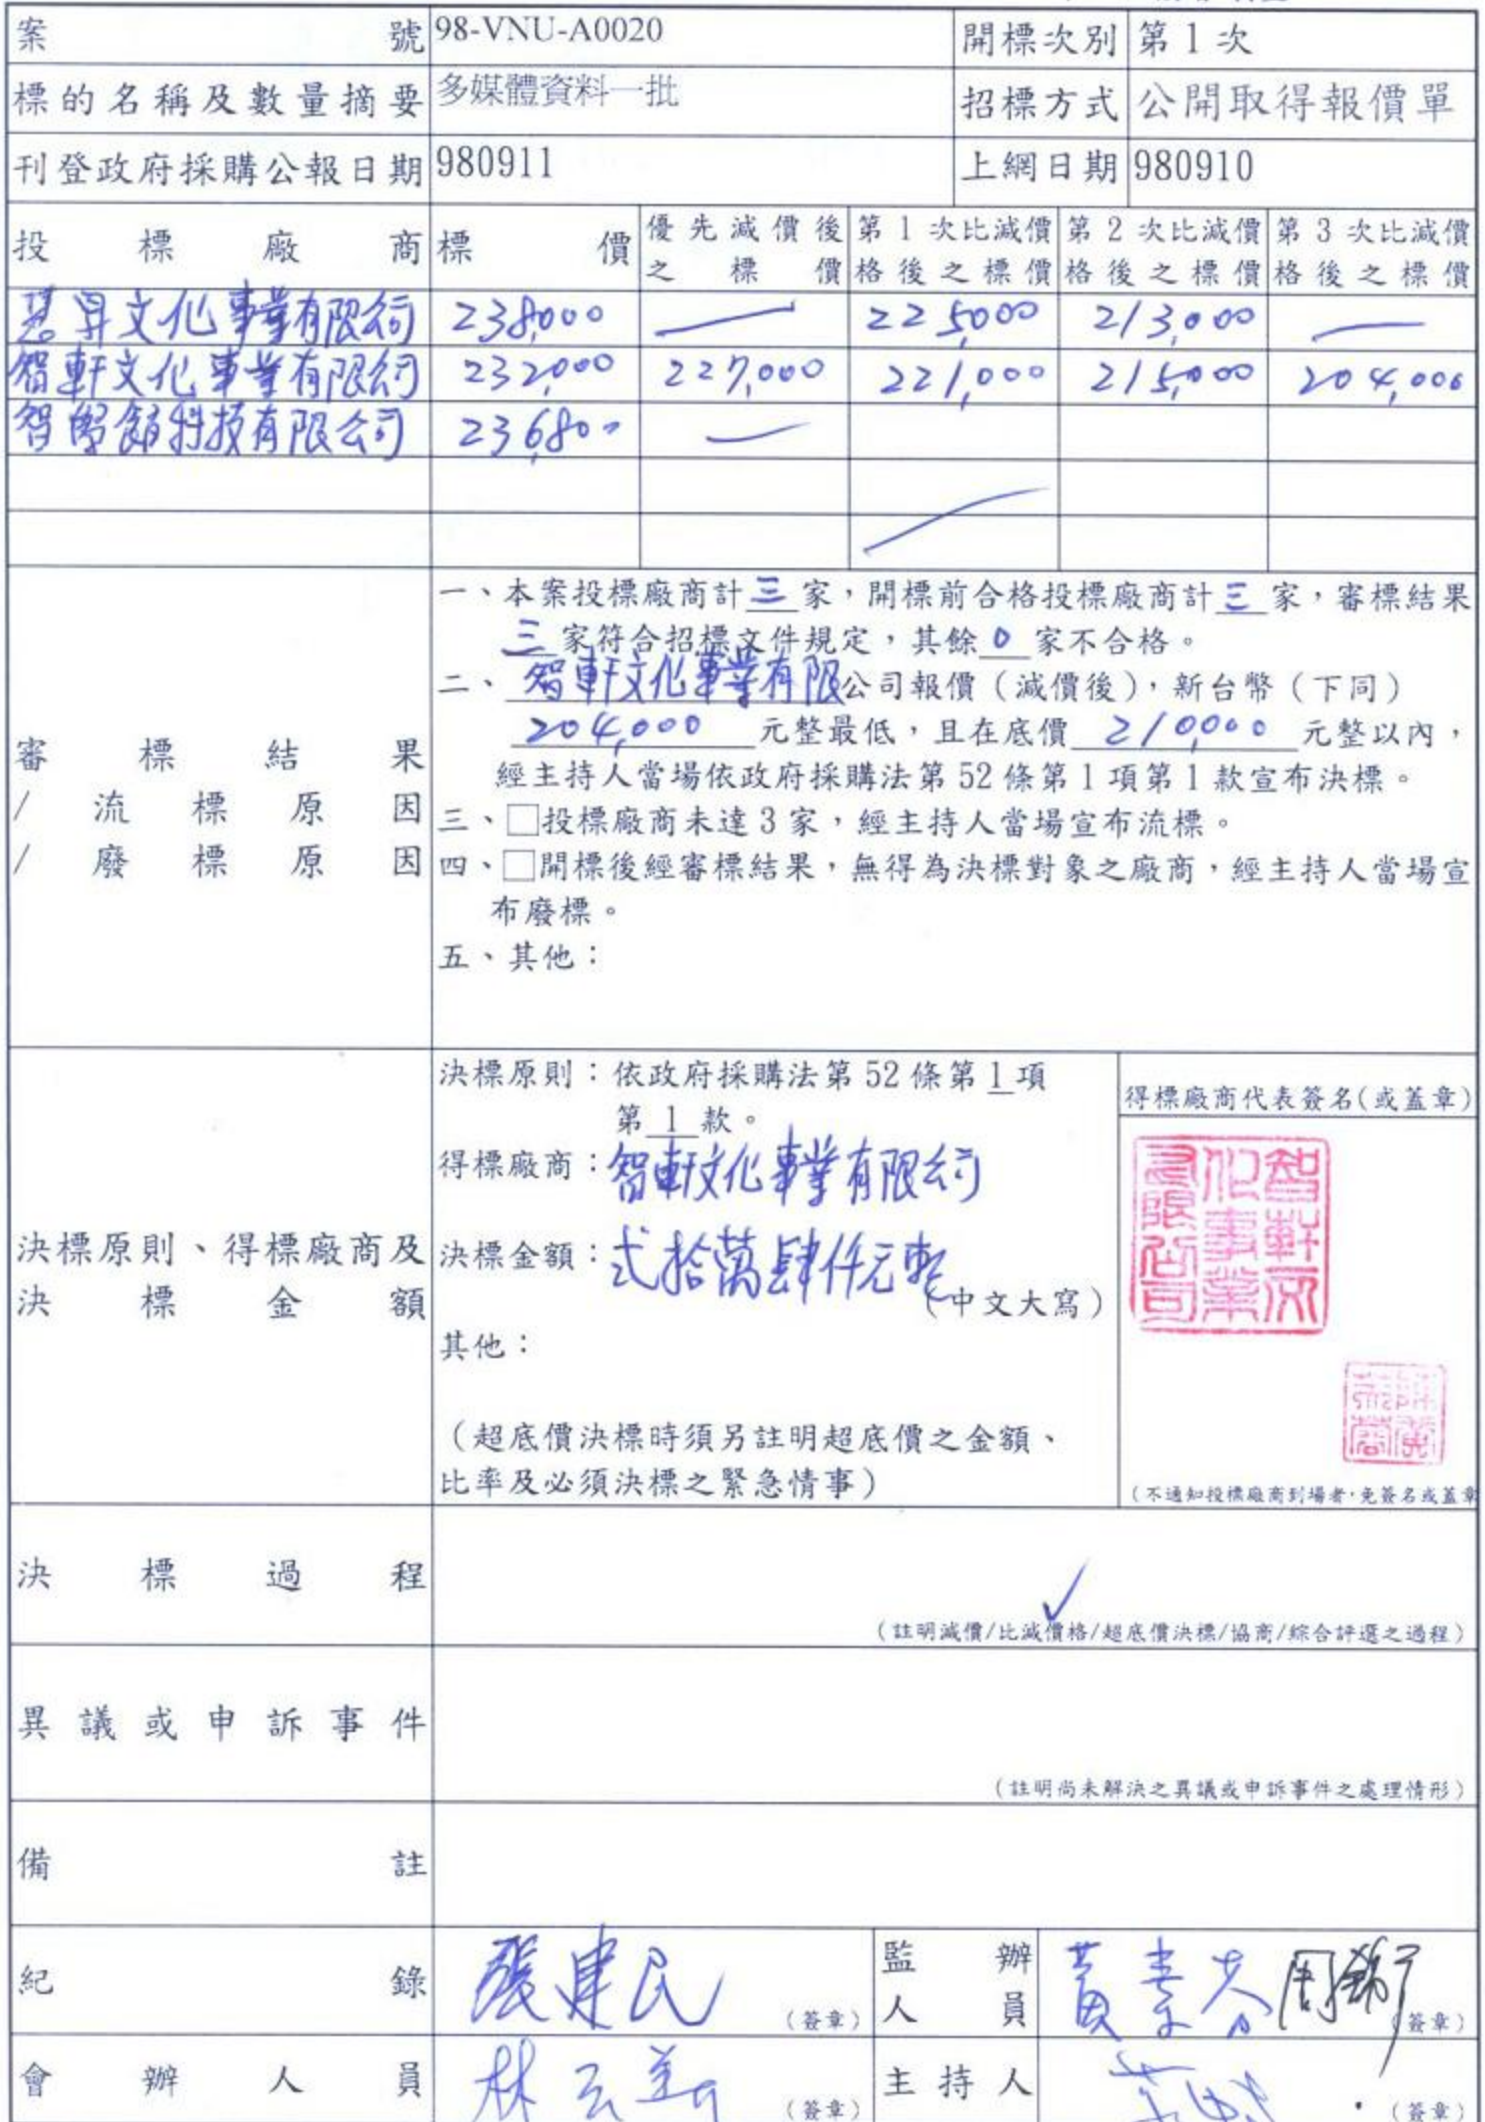 案號 98-VNU-A0020 開標次別 第1次
標的名稱及數量摘要 多媒體資料一批 招標方式 公開取得報價單
刊登政府採購公報日期 980911 上網日期 980910
投標廠商 標價 優先減價後之標價 第1次比減價格後之標價 第2次比減價格後之標價 第3次比減價格後之標價
昇文化事業有限公司 238,000 — 225,000 213,000 —
智軒文化事業有限公司 232,000 227,000 221,000 215,000 204,000
智學館科技有限公司 236,800 —
審標結果
/流標原因
/廢標原因
一、本案投標廠商計三家,開標前合格投標廠商計三家,審標結果
三家符合招標文件規定,其餘0家不合格。
二、智軒文化事業有限公司報價(減價後),新台幣(下同)
204,000元整最低,且在底價210,000元整以內,
經主持人當場依政府採購法第52條第1項第1款宣布決標。
三、□投標廠商未達3家,經主持人當場宣布流標。
四、□開標後經審標結果,無得為決標對象之廠商,經主持人當場宣
布廢標。
五、其他:
決標原則、得標廠商及
決標金額
決標原則:依政府採購法第52條第1項
第1款。
得標廠商:智軒文化事業有限公司
決標金額:弍拾萬肆仟元整
(中文大寫)
其他:
(超底價決標時須另註明超底價之金額、
比率及必須決標之緊急情事)
得標廠商代表簽名(或蓋章)
智軒文
化事業
有限公司
(不通知投標廠商到場者,免簽名或蓋章
決標過程
✓
(註明減價/比減價格/超底價決標/協商/綜合評選之過程)
異議或申訴事件
(註明尚未解決之異議或申訴事件之處理情形)
備註
紀錄 張建民 (簽章) 監辦人員 黃素芬 (簽章)
會辦人員 林 (簽章) 主持人 (簽章)